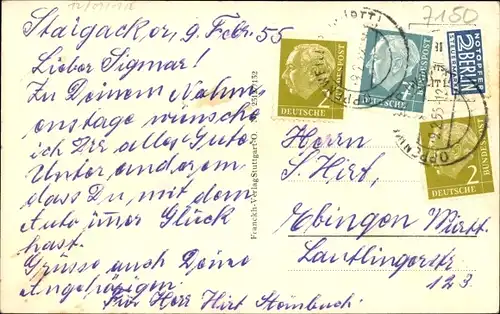 12/091-118
7150
Staigacker, 9. Febr. 55
Lieber Sigmar!
Zu Deinem Nahm-
enstage wünsche
ich Dir alles Gute
Unter anderem,
dass Du, mit dem
Auto imer Glück
hast.
Grüsse auch Deine
Angehörigen.
Für Herr Hirt Steinbuch
Franckh-Verlag Stuttgart O.
Herrn
S. Hirt,
Ebingen Württ.
Lautlingerstr
123
2
DEUTSCHE BUNDESPOST
DEUTSCHE BUNDESPOST
2
DEUTSCHE BUNDESPOST
NOTOPFER
2 BERLIN
STEUERMARKE